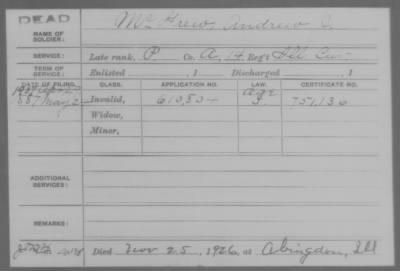 DEAD
Mc Grew, Andrew J.
NAME OF SOLDIER:
SERVICE: Late rank, P. Co. A, 14 Reg't Ill Cav
TERM OF SERVICE: Enlisted , 1 Discharged , 1
DATE OF FILING. CLASS. APPLICATION NO. LAW. CERTIFICATE NO.
Age
1887 May 2 Invalid, 757,136
Widow,
Minor,
ADDITIONAL SERVICES:
REMARKS:
Died Nov 25, 1926, at Abingdon, Ill